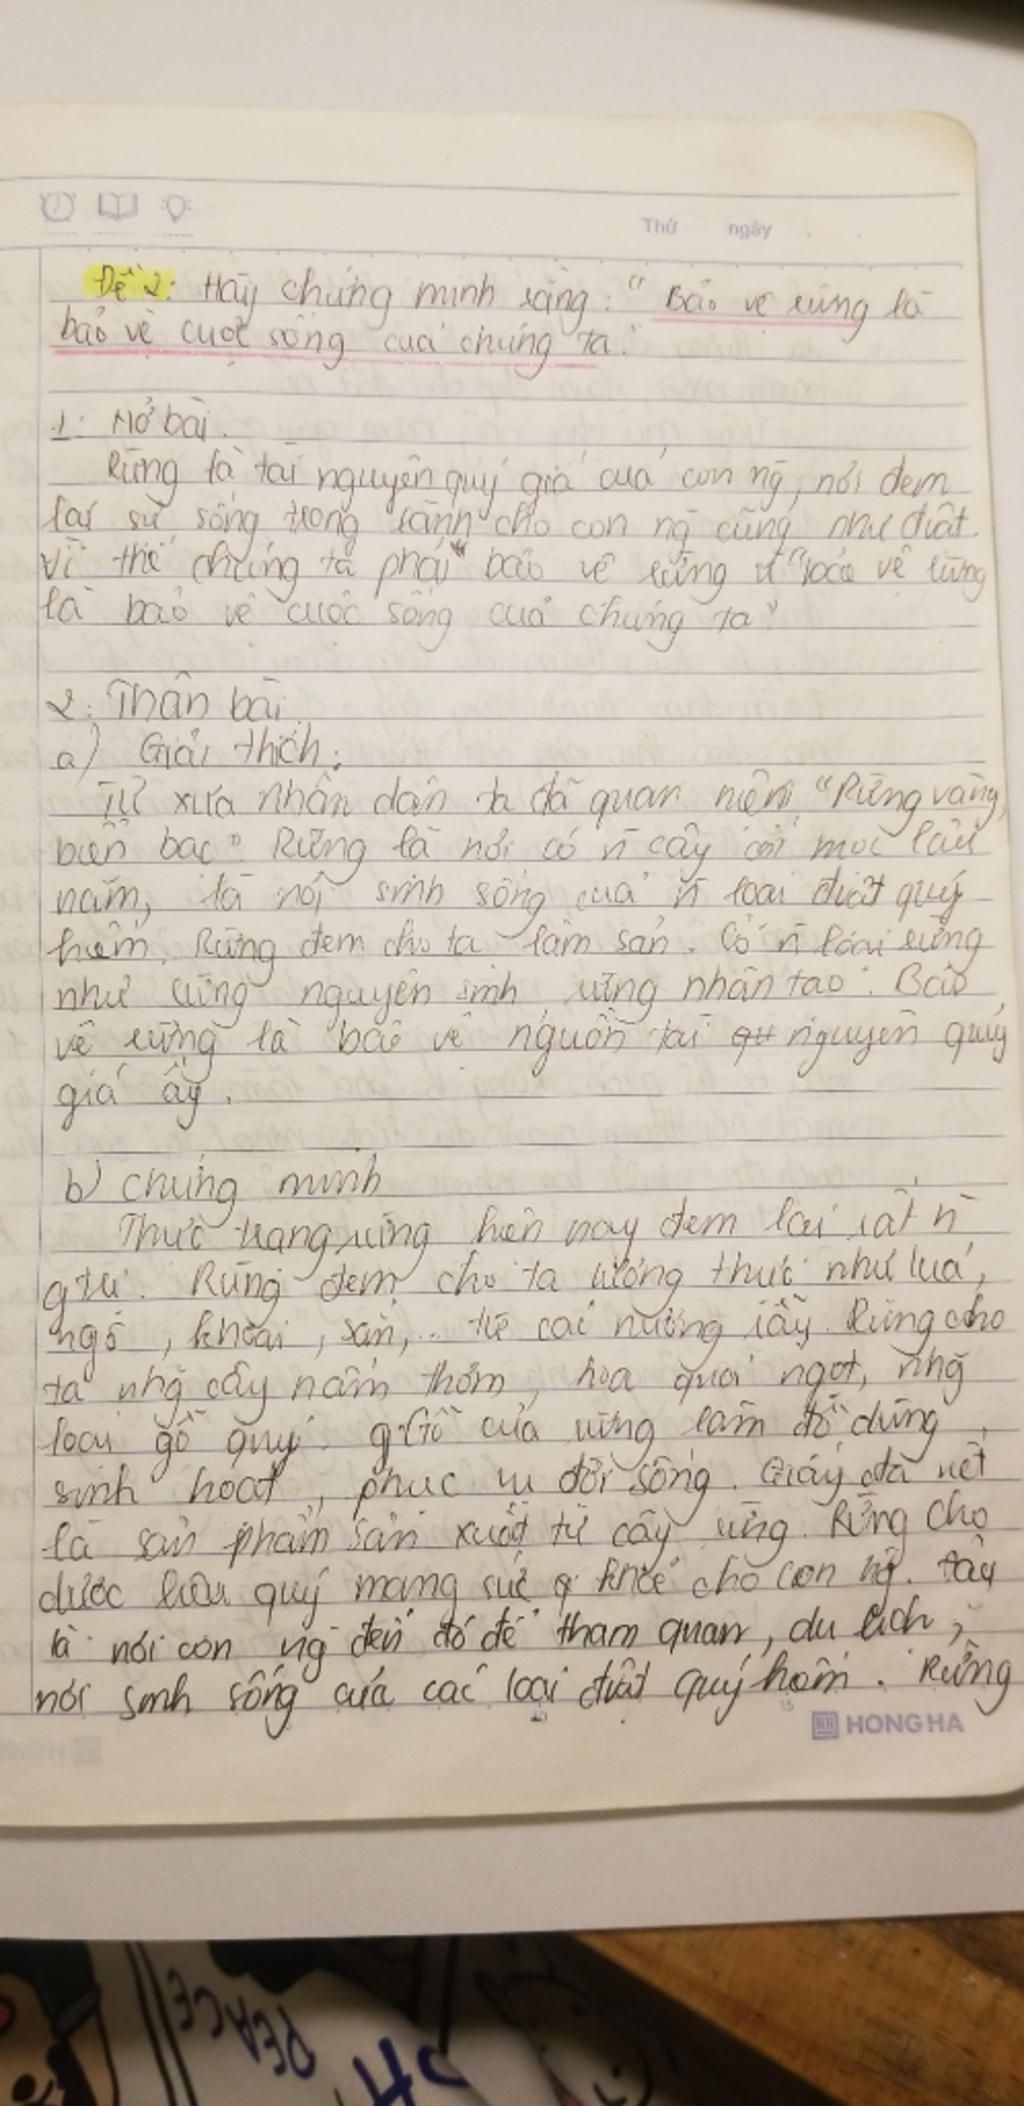 Thứ ngày
Đề 2: Hãy chứng minh rằng: "Bảo vệ rừng là
bảo vệ cuộc sống của chúng ta.
1. Mở bài.
Rừng là tài nguyên quý giá của con ng, nơi đem
lại sự sống trong lành cho con ng cũng như đvật.
Vì thế chúng ta phải bảo vệ rừng vì "bảo vệ rừng
là bảo vệ cuộc sống của chúng ta"
2. Thân bài
a) Giải thích:
Từ xưa nhân dân ta đã quan niệm "Rừng vàng,
biển bạc". Rừng là nơi có n̄ cây cối mọc lâu
năm, là nơi sinh sống của n̄ loài đvật quý
hiếm. Rừng đem cho ta lâm sản. Có n̄ loại rừng
như rừng nguyên sinh rừng nhân tạo. Bảo
vệ rừng là bảo vệ nguồn tài nguyên quý
giá ấy.
b) chứng minh
Thực trạng rừng hiện nay đem lại rất n̄
gtrị. Rừng đem cho ta lương thực như lúa,
ngô, khoai, sắn,... từ cái nương rẫy. Rừng cho
ta nhg cây nấm thơm, hoa quả ngọt, nhg
loại gỗ quý. gỗ của rừng làm đồ dùng,
sinh hoạt, phục vụ đời sống. Giấy ta viết
là sản phẩm sản xuất từ cây rừng. Rừng cho
dược liệu quý mang sức khoẻ cho con ng. Đây
là nơi con ng đến đó để tham quan, du lịch,
nơi sinh sống của các loài đvật quý hiếm. Rừng
HONG HA
PEACE